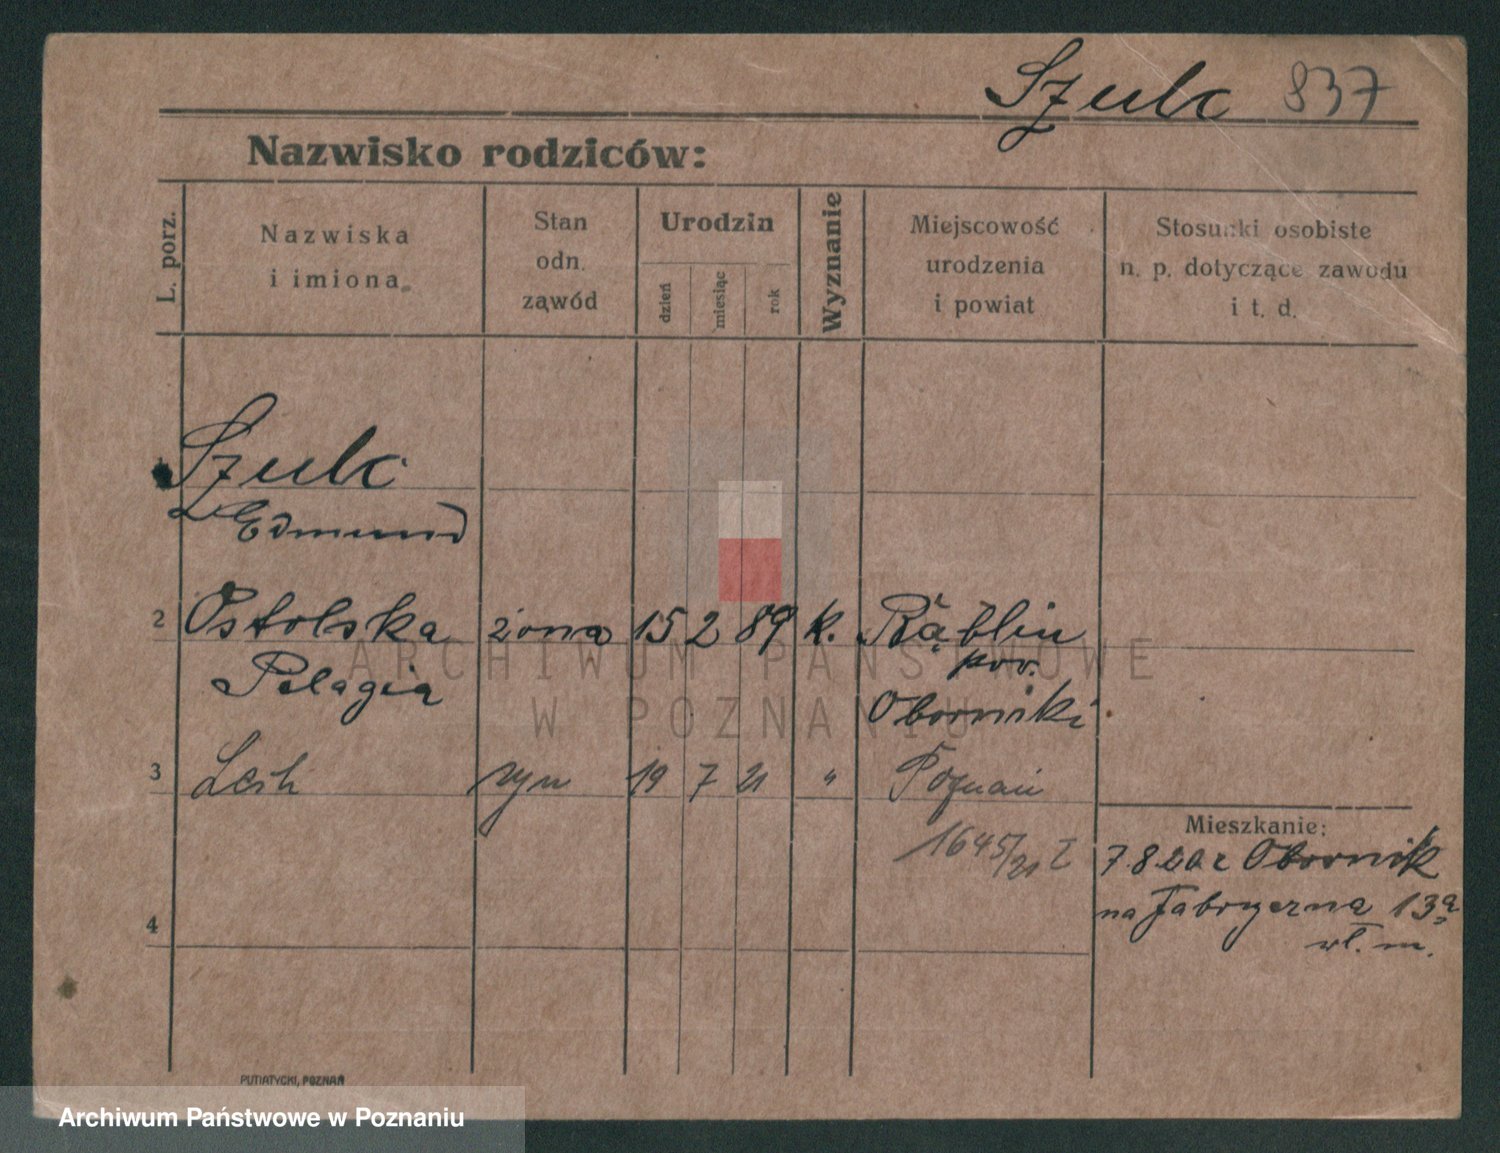 Szulc 837
Nazwisko rodziców:
L. porz.
Nazwiska
i imiona
Stan
odn.
ząwód
Urodzin
dzień
miesiąc
rok
Wyznanie
Miejscowość
urodzenia
i powiat
Stosunki osobiste
n. p. dotyczące zawodu
i t. d.
Szulc
Edmund
2 Ostolska żona 15 2 89 k.
Pelagia pow.
Oborniki
3 Lech syn 19 7 21 " Poznań
1645/21 I
Mieszkanie:
7.8.20 z Obornik
na Fabryczna 13a
wł. m.
4
ARCHIWUM PAŃSTWOWE
W POZNANIU
PUTIATYCKI, POZNAŃ
Archiwum Państwowe w Poznaniu